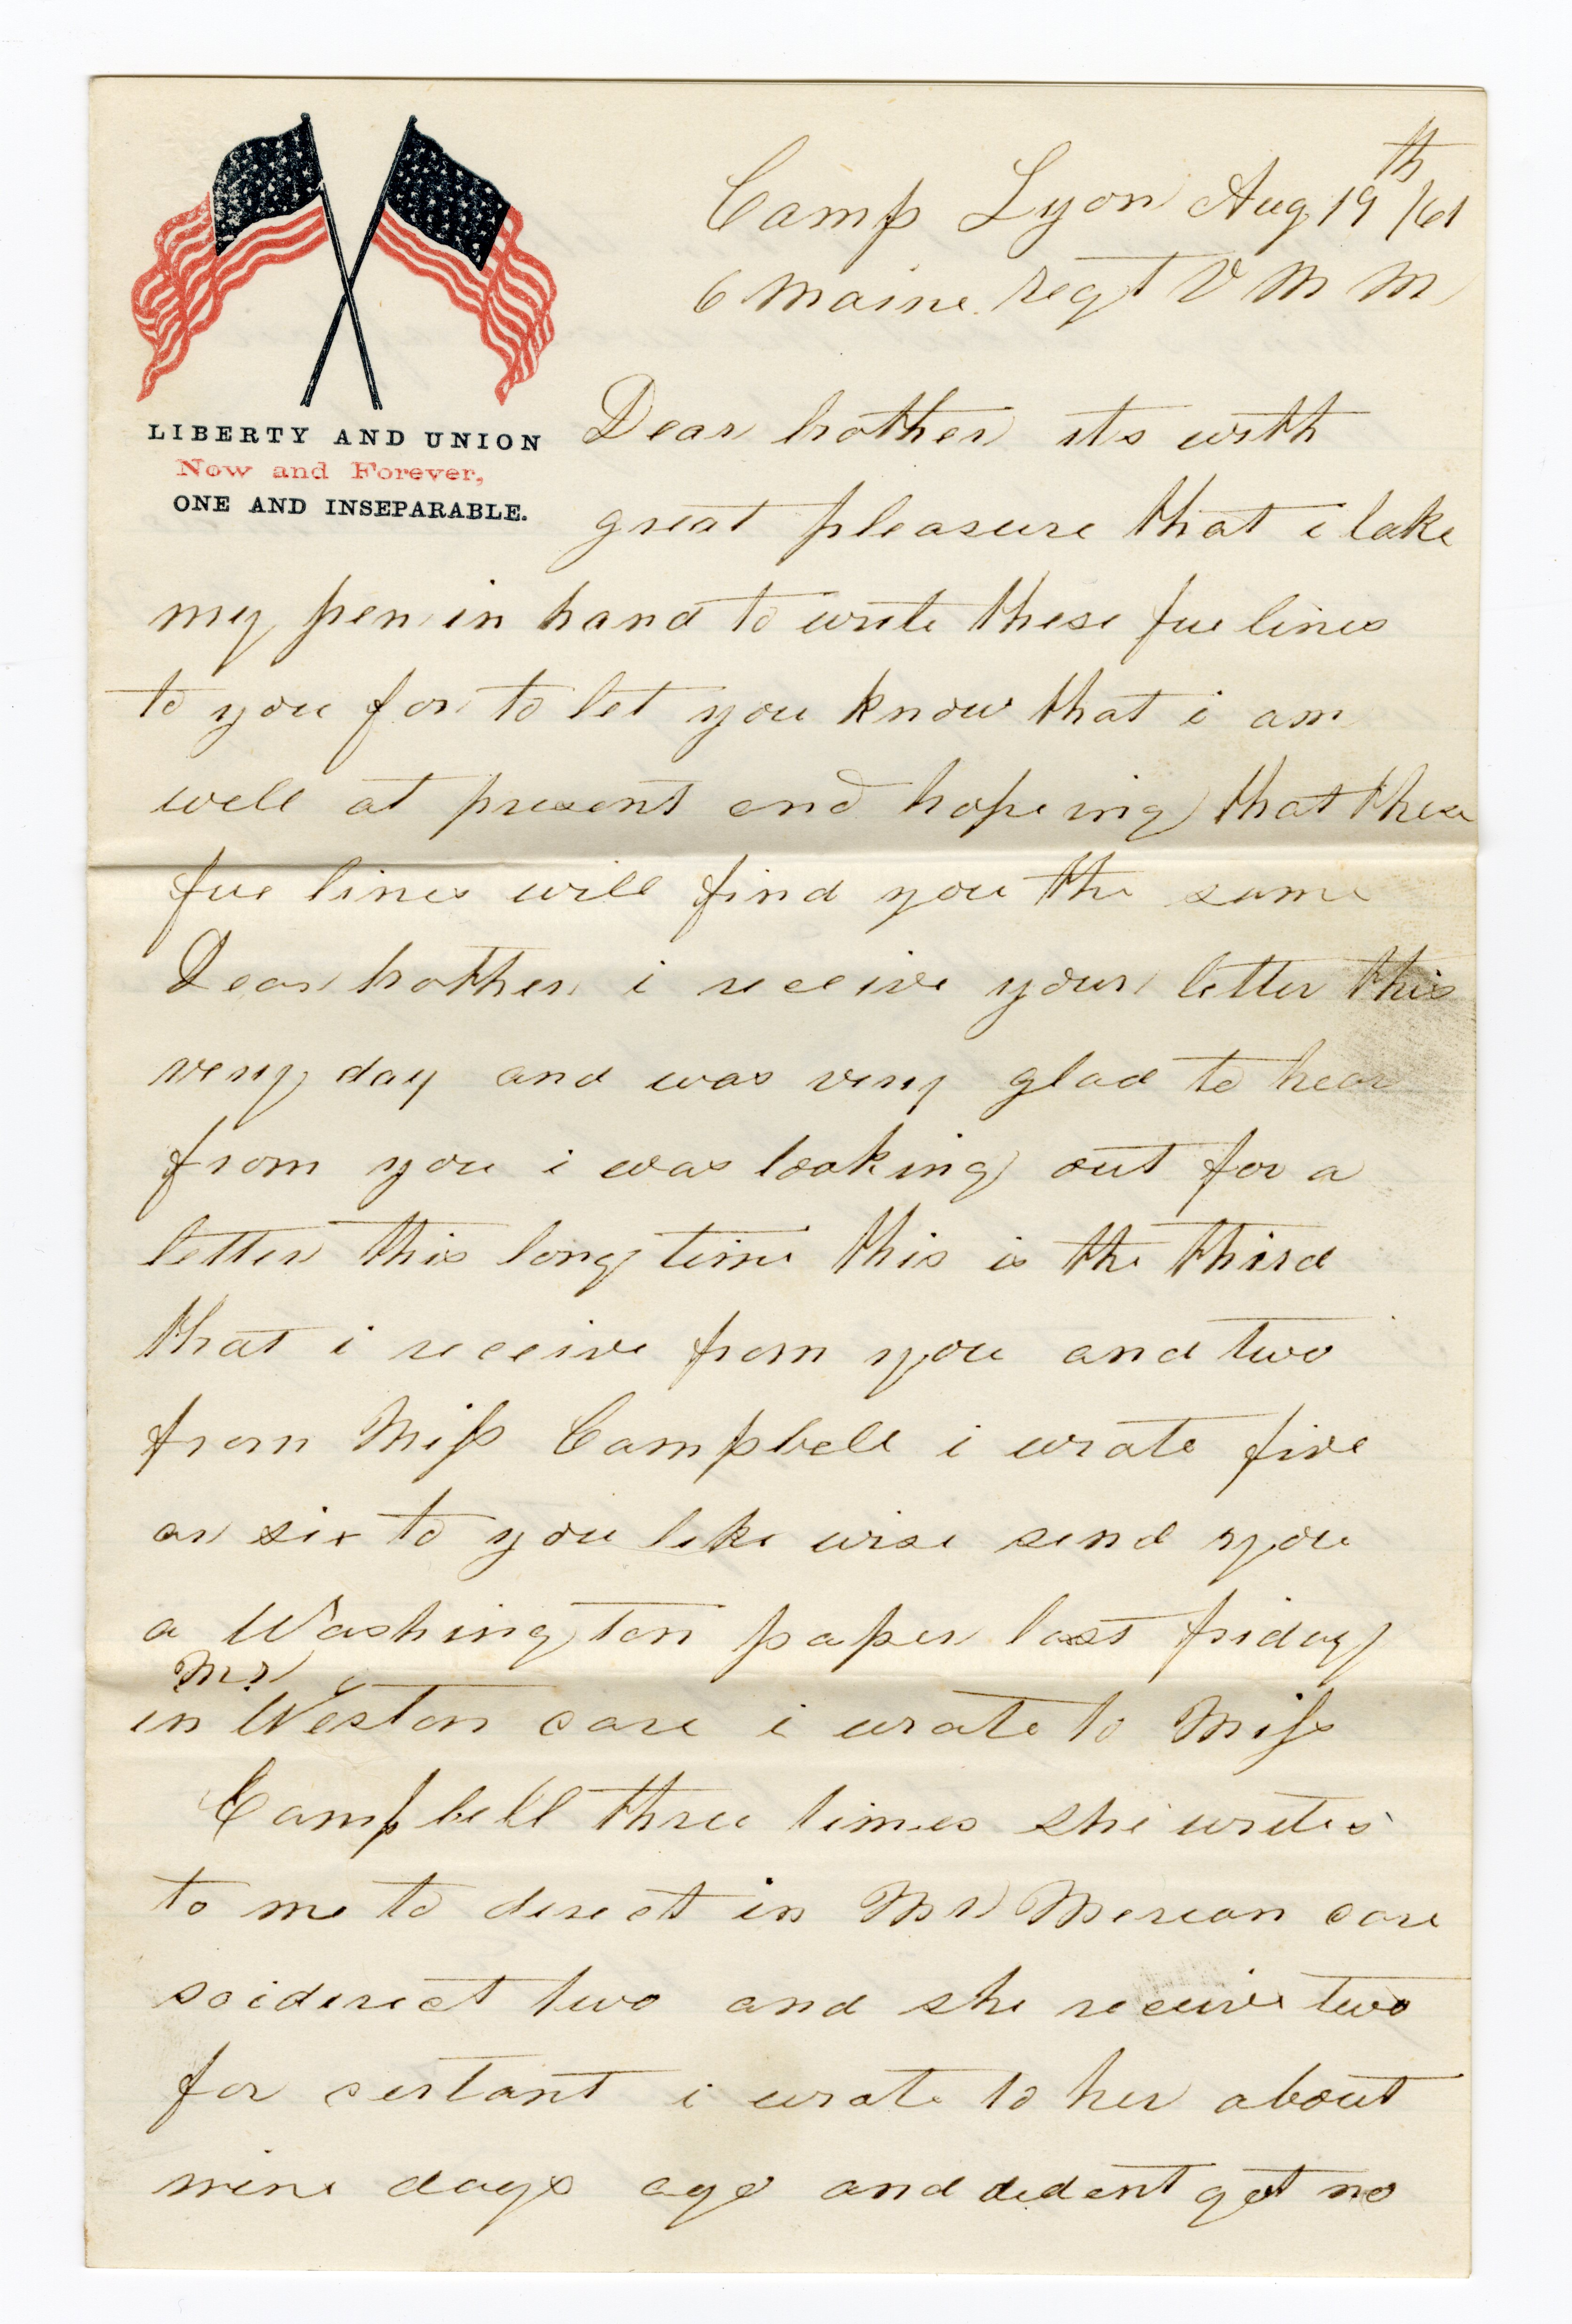 Camp Lyon Aug 19th /61
6 Maine Regt V M M
LIBERTY AND UNION
Now and Forever,
ONE AND INSEPARABLE.
Dear brother its with
great pleasure that i take
my pen in hand to write these fue lines
to you for to let you know that i am
well at present and hopeing that these
fue lines will find you the same
Dear brother i receive your letter this
very day and was very glad to hear
from you i was looking out for a
letter this long time this is the third
that i receive from you and two
from Miss Campbell i wrate five
or six to you like wise send you
a Washington paper last friday
Mr
in Weston care i wrate to Miss
Campbell three times she writes
to me to direct in Mr Merean care
so i direct two and she receive two
for certant i wrate to her about
nine days ago and dedent get no